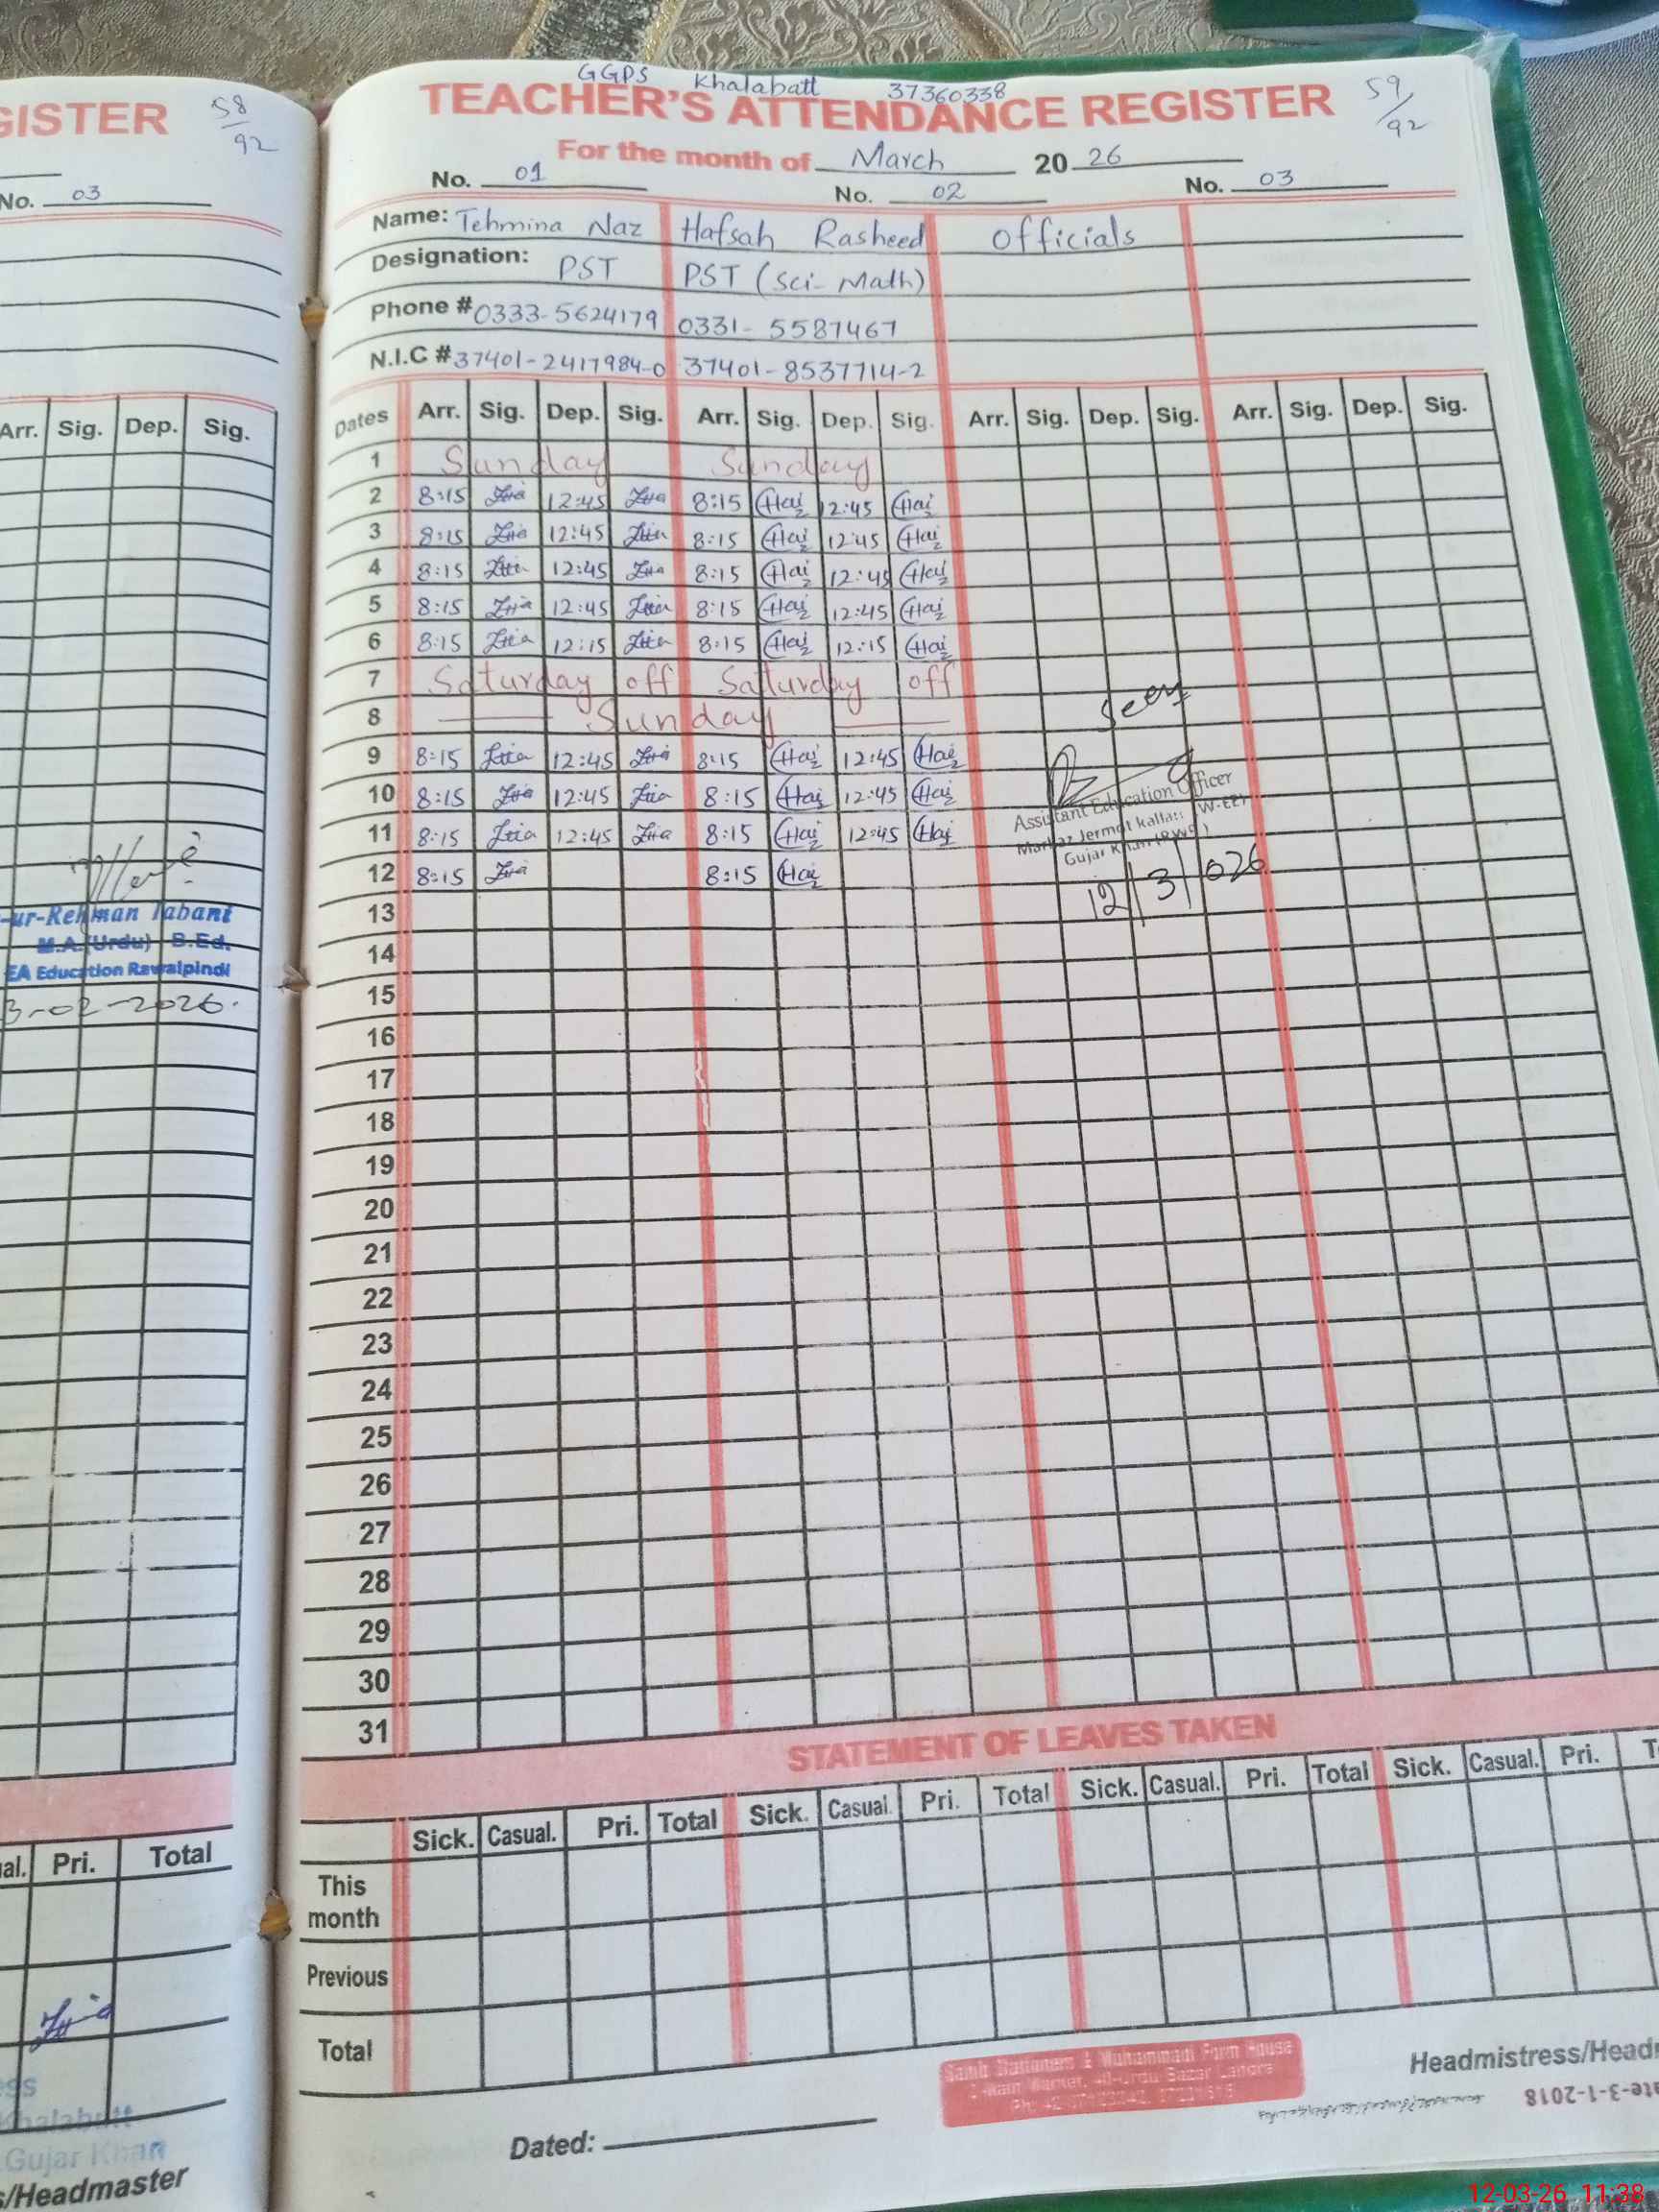 GISTER
58/92
No. 03
Arr. Sig. Dep. Sig.
-ur-Rehman Tabani
M.A.(Urdu) B.Ed.
EA Education Rawalpindi
3-02-2026.
al. Pri. Total
ess
Khalabutt
Gujar Khan
s/Headmaster
GGPS Khalabatt 37360338
TEACHER'S ATTENDANCE REGISTER
59/92
For the month of March 20 26
No. 01 No. 02 No. 03
Name: Tehmina Naz Hafsah Rasheed Officials
Designation: PST PST (Sci-Math)
Phone # 0333-5624179 0331-5587467
N.I.C # 37401-2417984-0 37401-8537714-2
Dates Arr. Sig. Dep. Sig. Arr. Sig. Dep. Sig. Arr. Sig. Dep. Sig. Arr. Sig. Dep. Sig.
1 Sunday Sunday
2 8:15 12:45 8:15 12:45
3 8:15 12:45 8:15 12:45
4 8:15 12:45 8:15 12:45
5 8:15 12:45 8:15 12:45
6 8:15 12:15 8:15 12:15
7 Saturday off Saturday off
8 Sunday
Seen
9 8:15 12:45 8:15 12:45
10 8:15 12:45 8:15 12:45
11 8:15 12:45 8:15 12:45
12 8:15 8:15
Assistant Education Officer
Markaz Jermot kallan W-EE
Gujar Khan (RWP)
12/3/026
13
14
15
16
17
18
19
20
21
22
23
24
25
26
27
28
29
30
31
STATEMENT OF LEAVES TAKEN
Sick. Casual. Pri. Total Sick. Casual. Pri. Total Sick. Casual. Pri. Total Sick. Casual. Pri. T
This month
Previous
Total
Muhammadi Form House
Main Market, Urdu Bazar Lahore
Headmistress/Head
ate-3-1-2018
Dated:
12-03-26 11:38